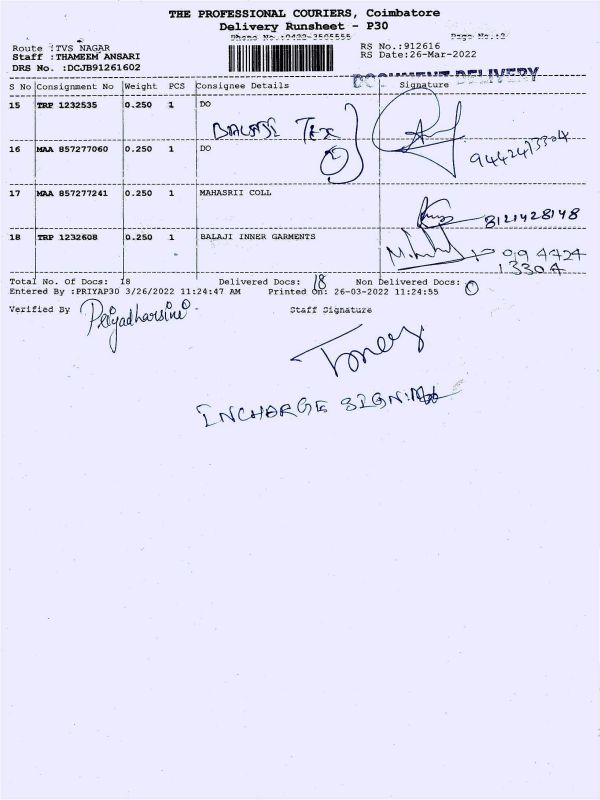 THE PROFESSIONAL COURIERS, Coimbatore
Delivery Runsheet - P30
Phone No.:0422-3505555 Page No.:2
Route :TVS NAGAR RS No.:912616
Staff :THAMEEM ANSARI RS Date:26-Mar-2022
DRS No. :DCJB91261602
DOCUMENT DELIVERY
S No Consignment No Weight PCS Consignee Details Signature
15 TRP 1232535 0.250 1 DO
BALAJI Tex
16 MAA 857277060 0.250 1 DO
9442413304
17 MAA 857277241 0.250 1 MAHASRII COLL
8121428148
18 TRP 1232608 0.250 1 BALAJI INNER GARMENTS
094424
13304
Total No. Of Docs: 18 Delivered Docs: 18 Non Delivered Docs: 0
Entered By :PRIYAP30 3/26/2022 11:24:47 AM Printed On: 26-03-2022 11:24:55
Verified By Priyadharsini Staff Signature
INCHARGE SIGN: